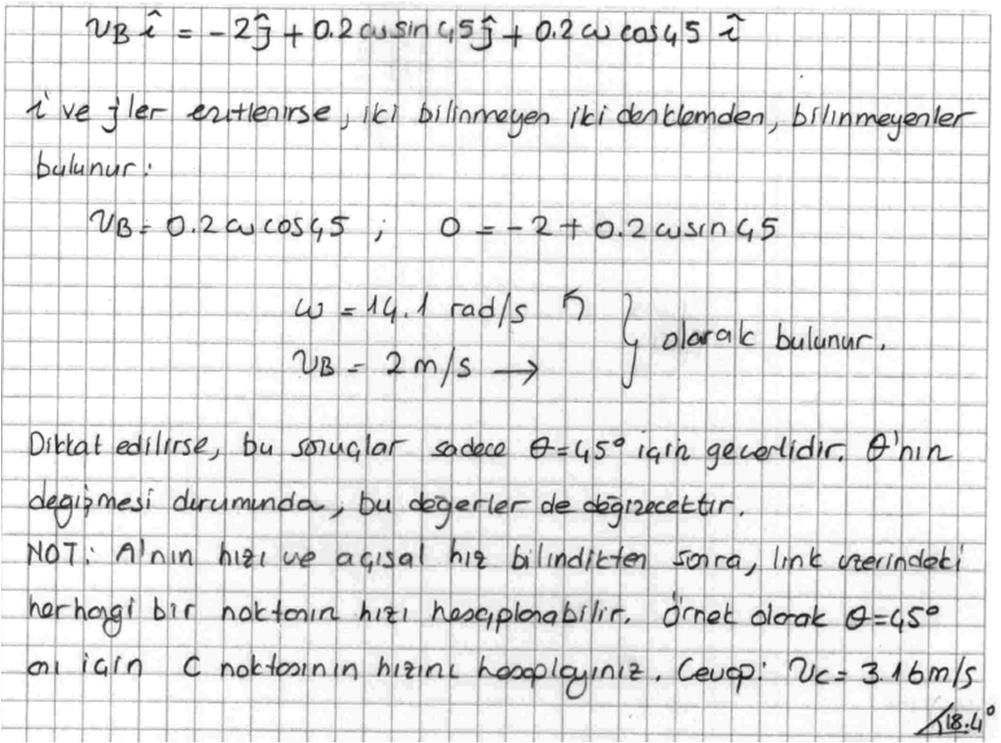 v_B î = -2ĵ + 0.2 ω sin 45 ĵ + 0.2 ω cos 45 î
i ve j'ler eşitlenirse, iki bilinmeyen iki denklemden, bilinmeyenler
bulunur:
v_B = 0.2 ω cos 45 ; 0 = -2 + 0.2 ω sin 45
ω = 14.1 rad/s ↰
v_B = 2 m/s → } olarak bulunur.
Dikkat edilirse, bu sonuçlar sadece θ=45° için geçerlidir. θ'nın
değişmesi durumunda, bu değerler de değişecektir.
NOT: A'nın hızı ve açısal hız bilindikten sonra, link üzerindeki
herhangi bir noktanın hızı hesaplanabilir. Örnek olarak θ=45°
anı için C noktasının hızını hesaplayınız. Cevap: v_C = 3.16 m/s
∡18.4°